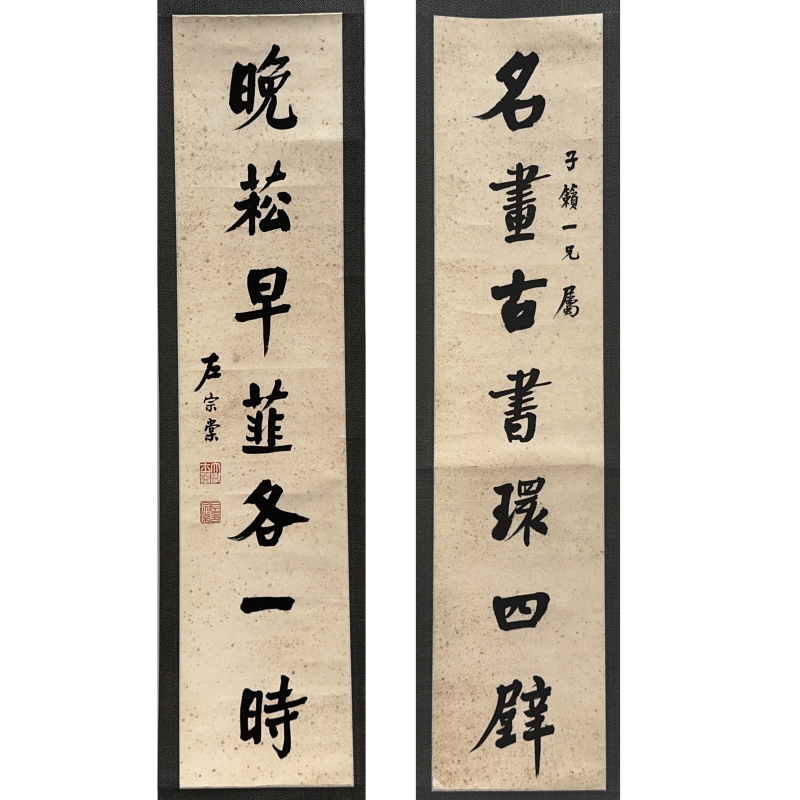 名畫古書環四壁
子籟一兄屬
晚菘早韮各一時
左宗棠